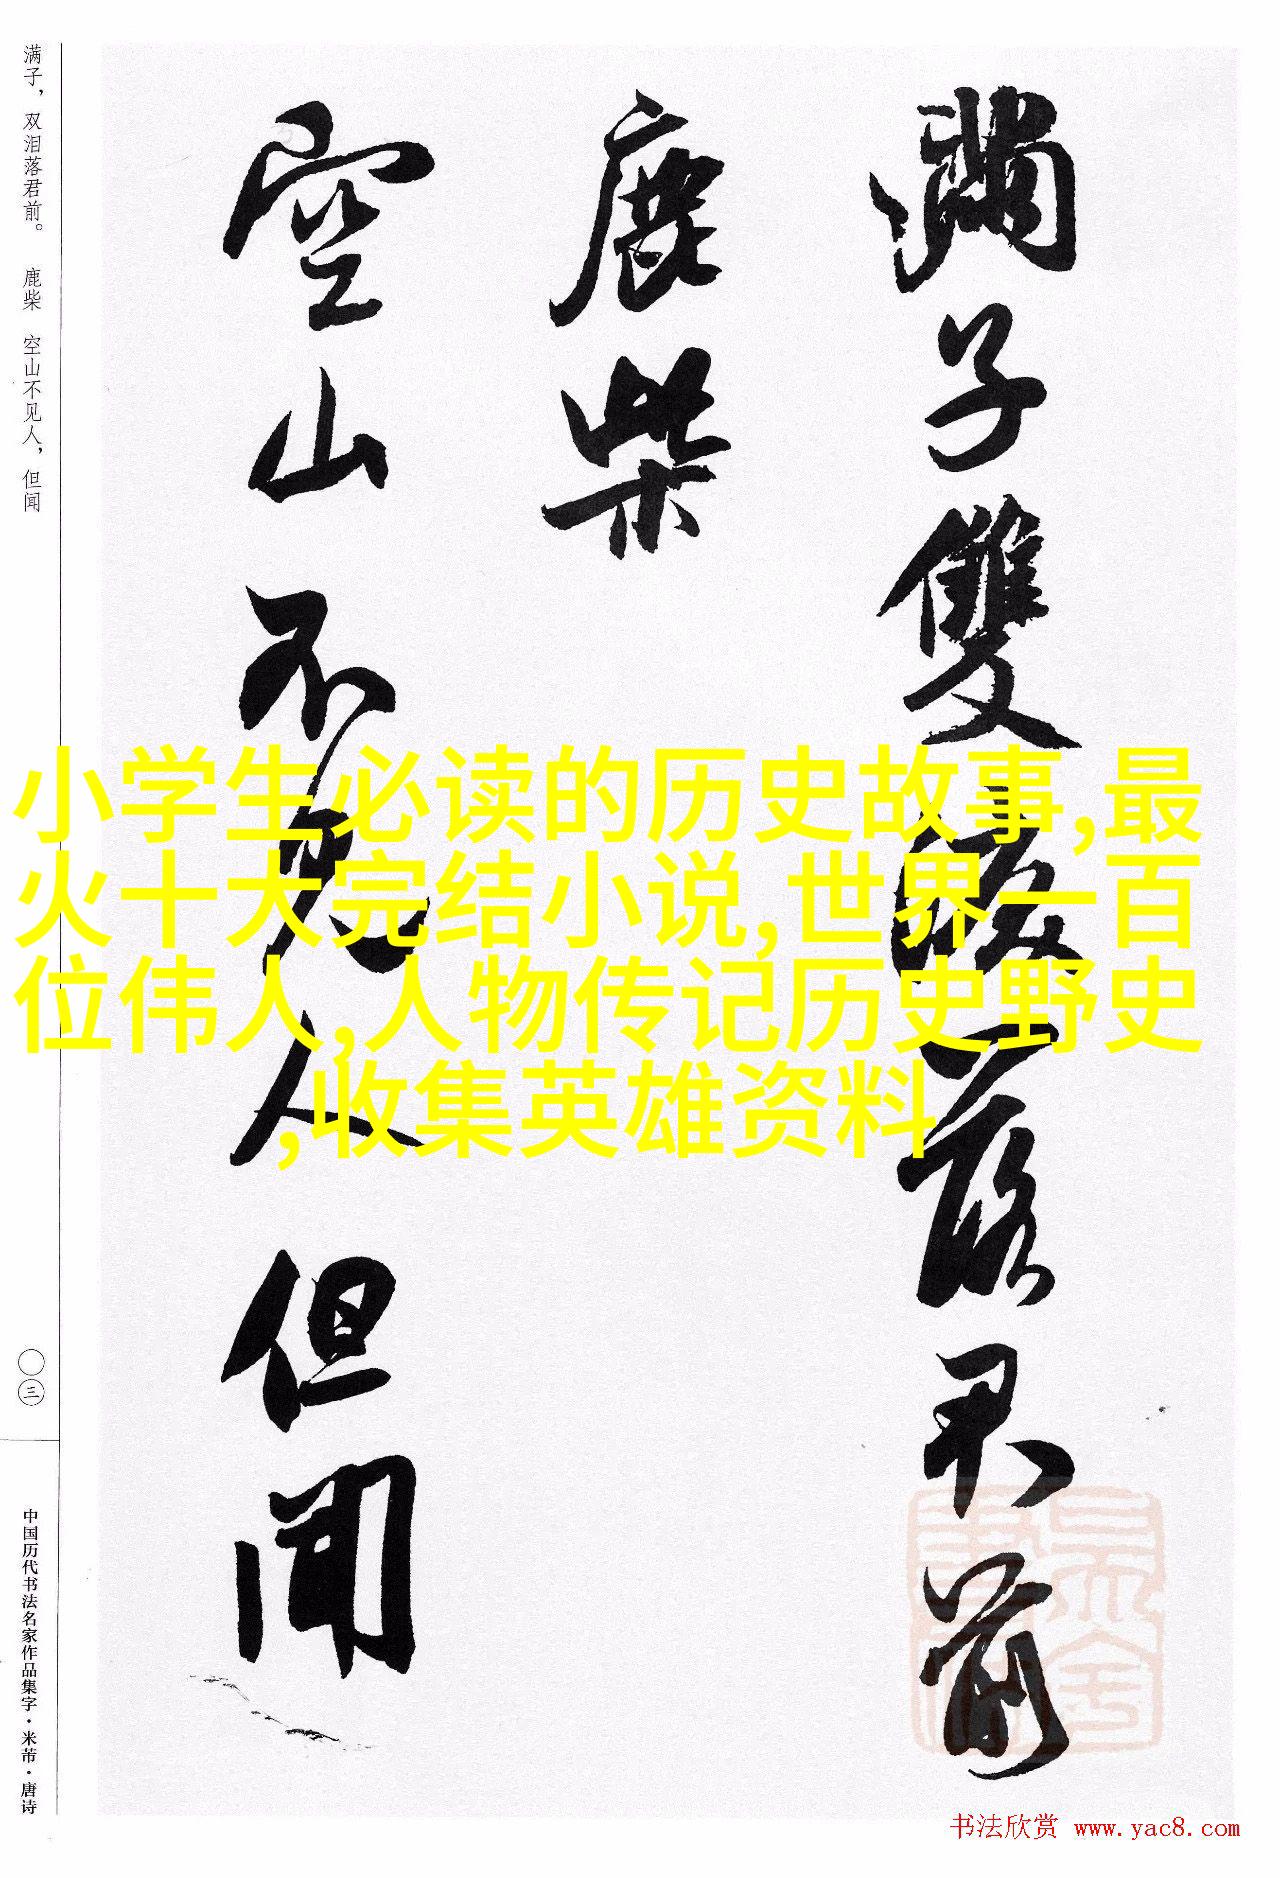 满子，双泪落君前。 鹿柴 空山不见人，但闻
〇三
中国历代书法名家作品集字·米芾·唐诗
满子雙淚落君前
鹿柴
空山不見人但聞
小学生必读的历史故事,最
火十大完结小说,世界一百
位伟人,人物传记历史野史
,收集英雄资料
书法欣赏 www.yac8.com